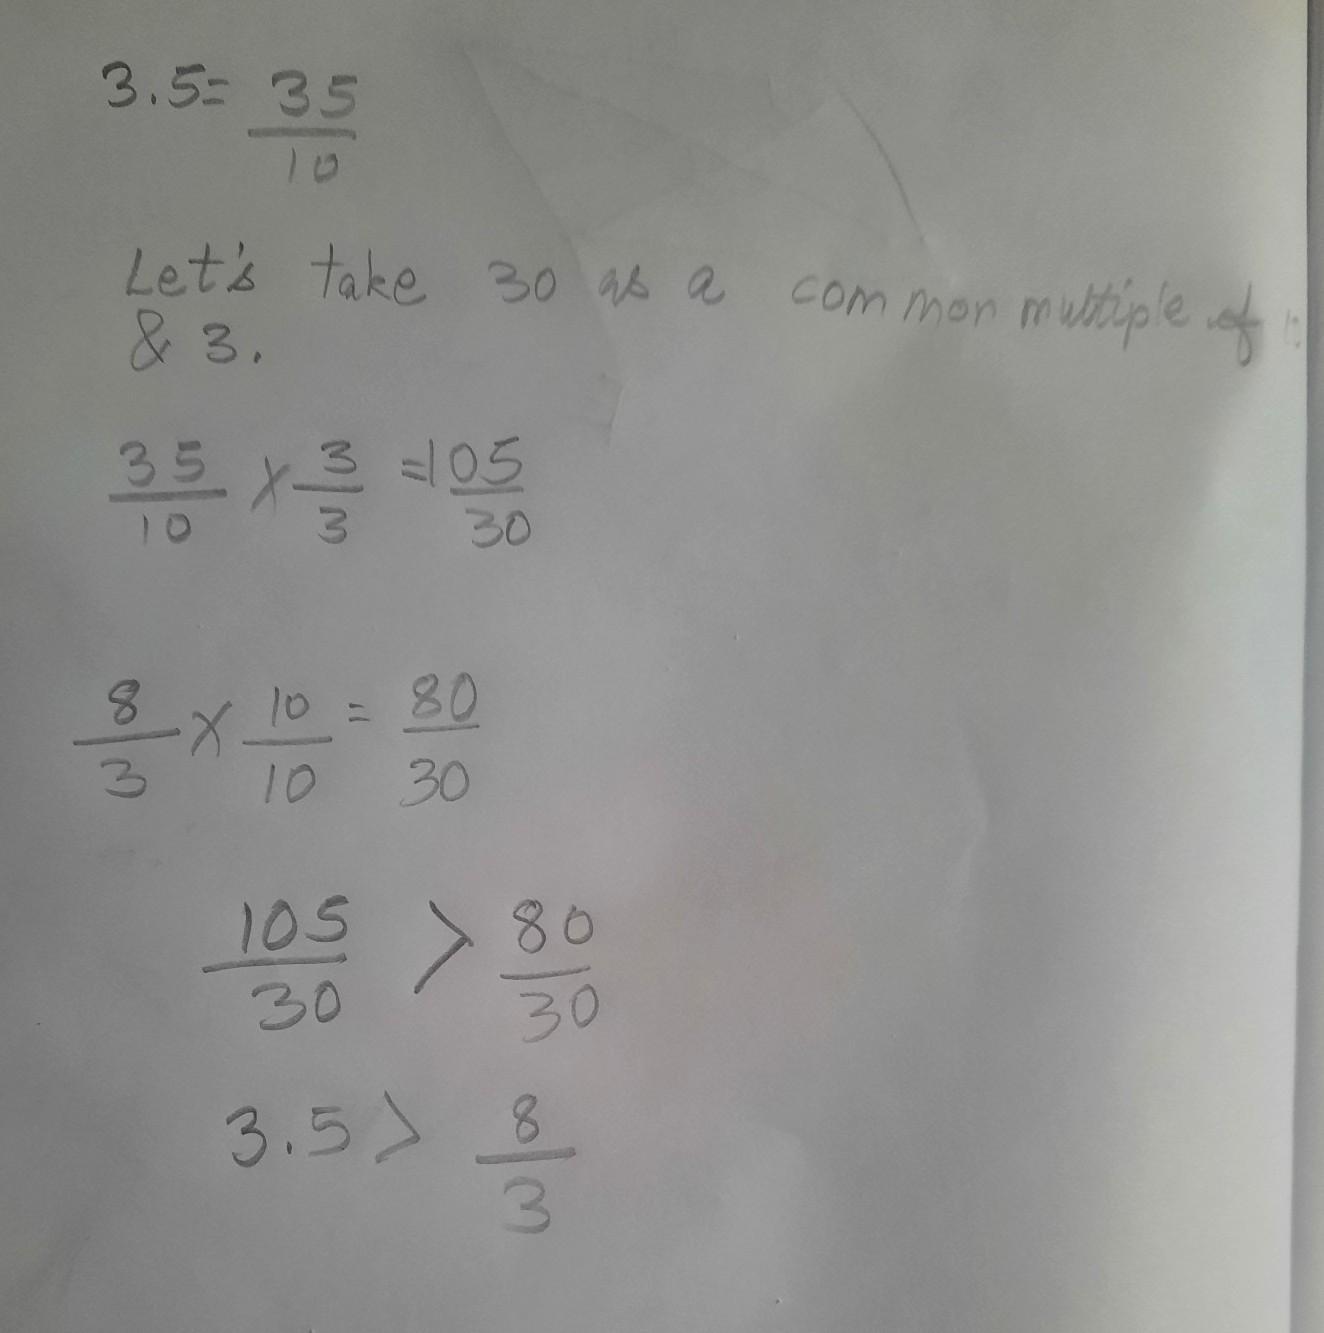 3.5= 35/10
Let's take 30 as a common multiple of
& 3.
35/10 X 3/3 =105/30
8/3 X 10/10 = 80/30
105/30 > 80/30
3.5> 8/3